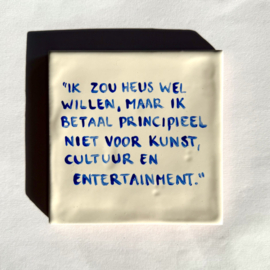 "IK ZOU HEUS WEL
WILLEN, MAAR IK
BETAAL PRINCIPIEEL
NIET VOOR KUNST,
CULTUUR EN
ENTERTAINMENT."